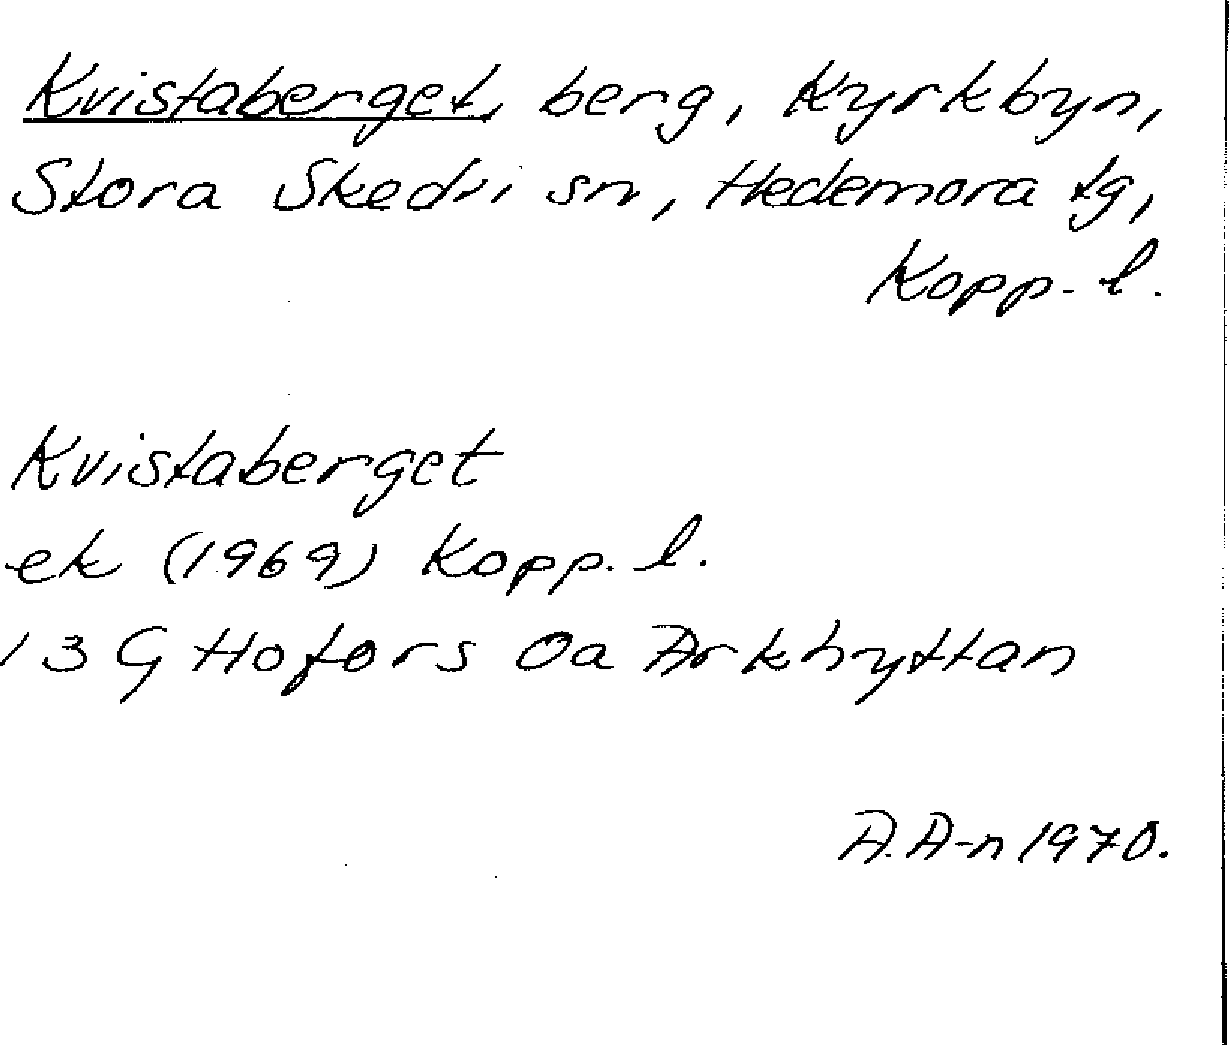 Kvistaberget, berg, Kyrkbyn,
Stora Skedvi sn, Hedemora tg,
Kopp. l.
Kvistaberget
ek (1969) Kopp. l.
13 G Hofors 0a Arkhyttan
A.A-n 1970.